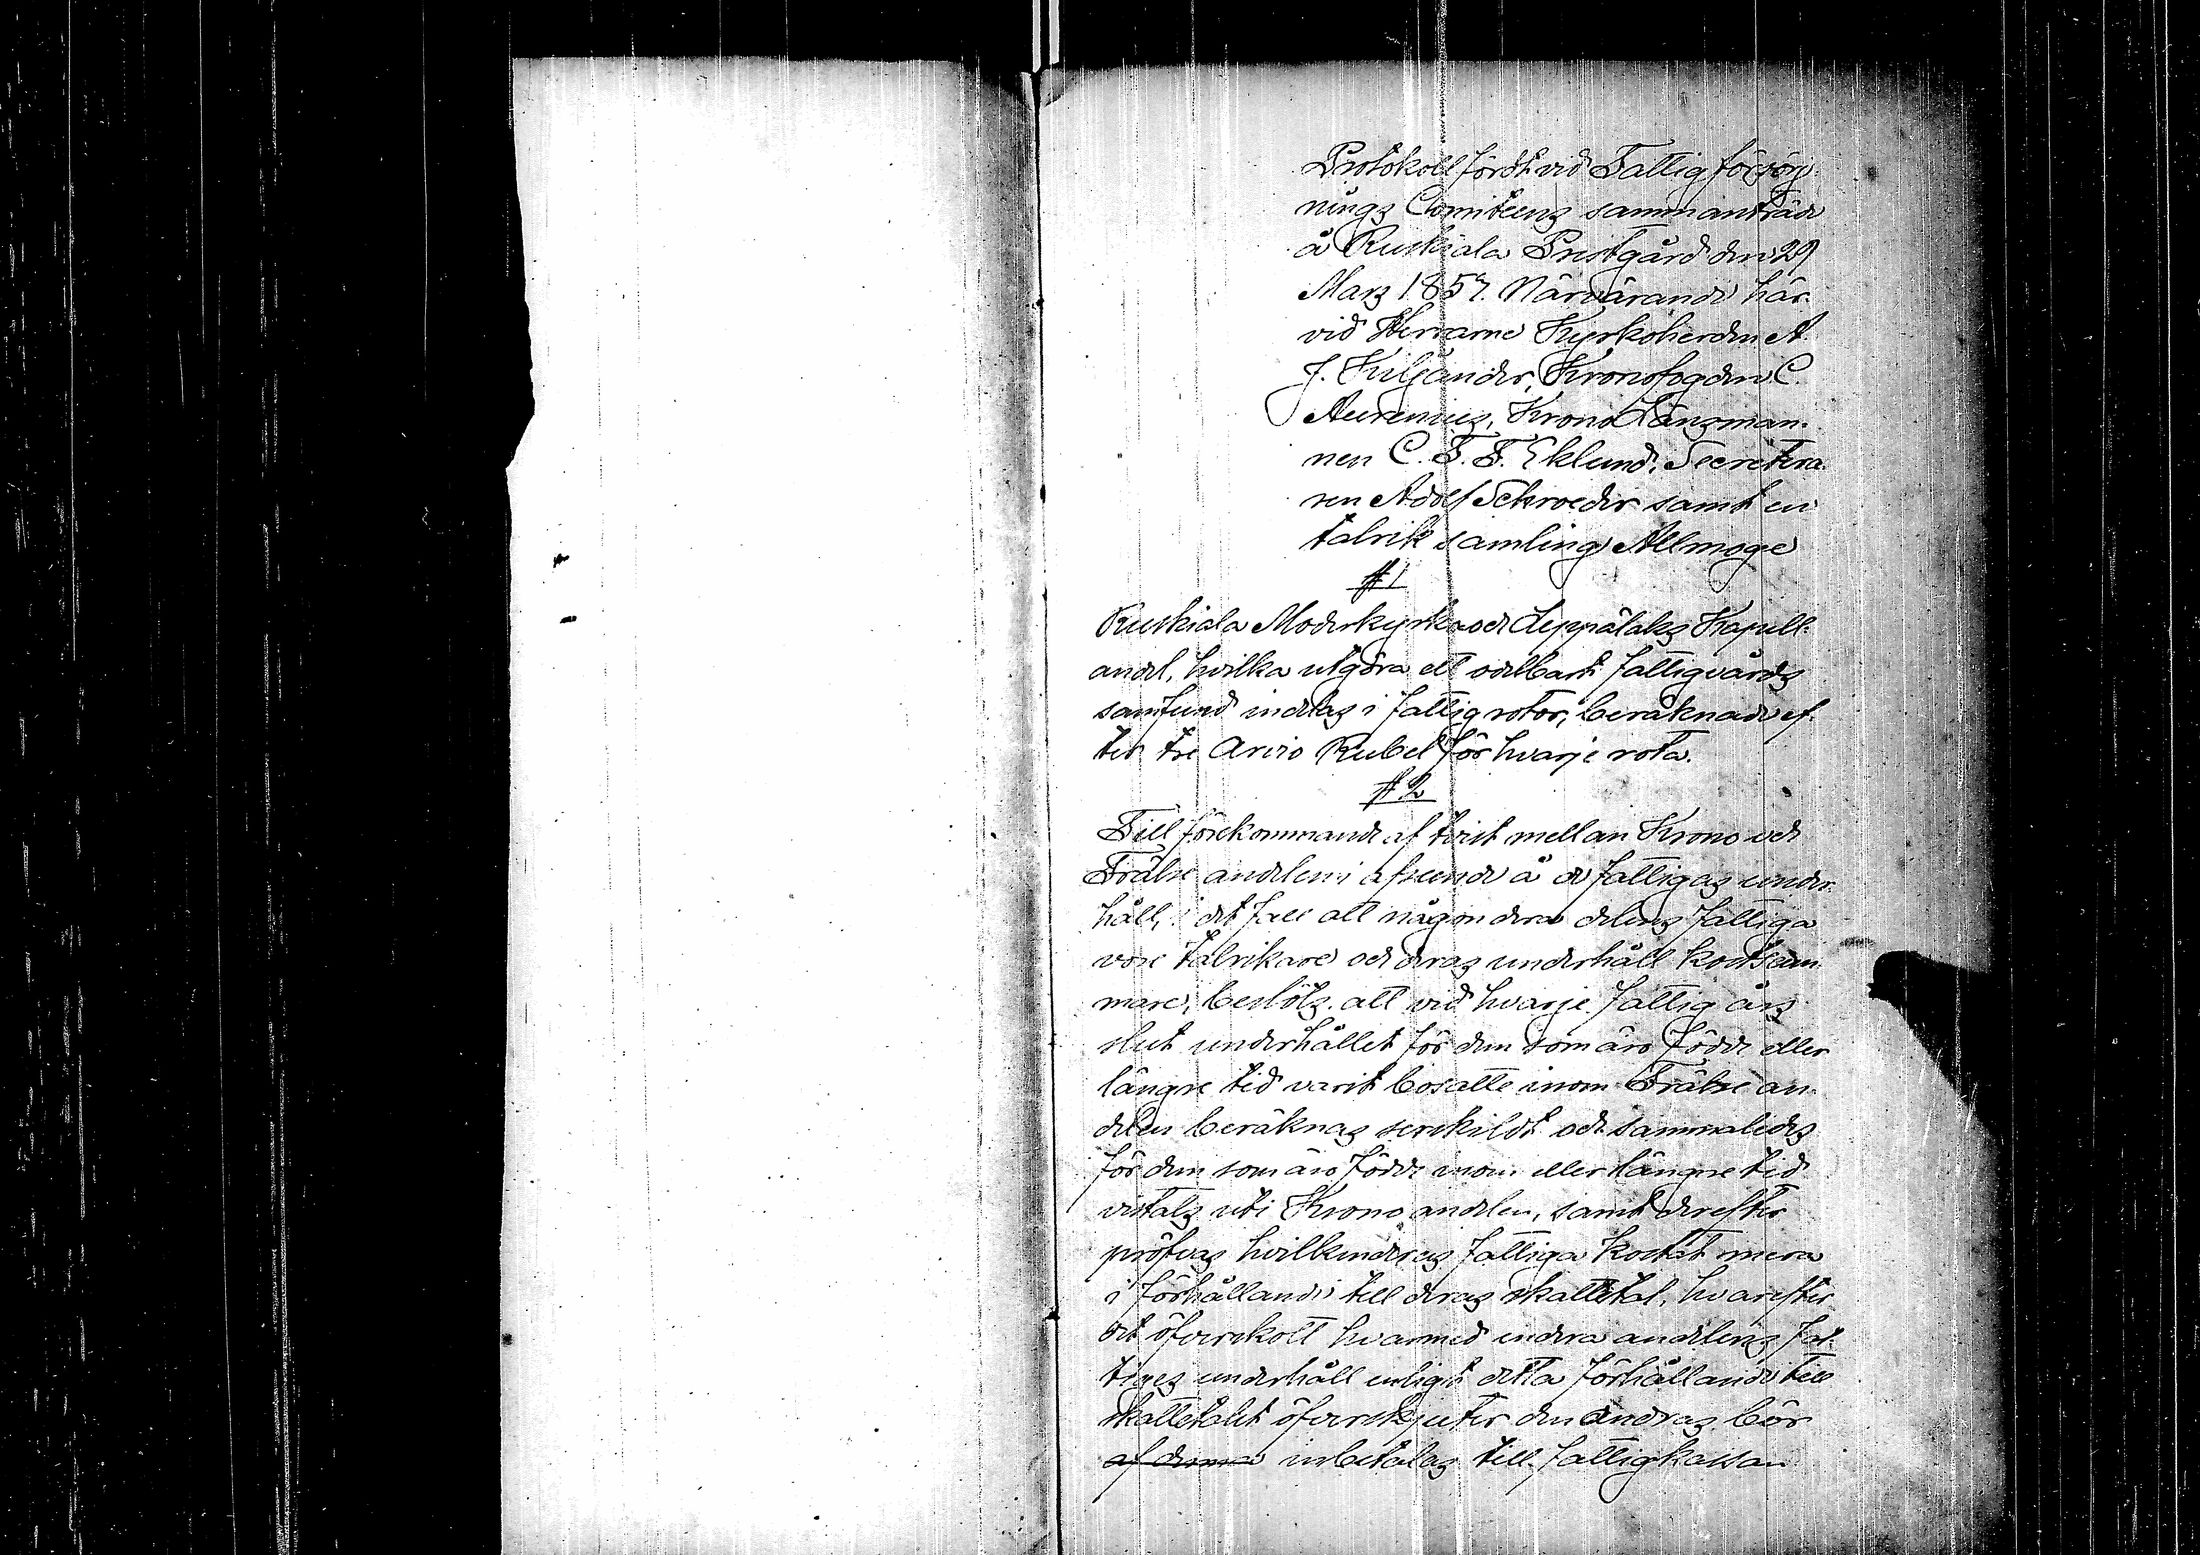 Protokoll fördt vid Fattigförsörj-
nings Comiteens sammanträde
å Ruskiala Prestgård den 29
Mars 1857. Närvarande här-
vid Herrarne Kyrkoherden A.
J. Kiljander, Kronofogden C.
Neiremius, Krono Länsman-
nen C. F. F. Eklund, Secretera-
ren Adolf Schroeder samt en
talrik samling Allmoge
§ 1
Ruskiala Moderkyrka och Leppälaks Kapell-
andel, hvilka utgöra ett odelbart fattigvårds
samfund indelas i fattigrotor, beräknade ef-
ter tre Arvio Rubel för hvarje rota.
§ 2
Till förekommande af tvist mellan Krono och
Frälse andelen i afseende å de fattigas under-
håll, i det fall att någondera delens fattiga
vore talrikare och deras underhåll kostsam-
mare, beslöts att vid hvarje fattig års
slut underhållet för dem som äro födde eller
längre tid varit bosatte inom Frälse an-
delen beräknas serskildt och sammaledes
för dem som äro födde inom eller längre tid
vistats uti Krono andelen, samt derefter
pröfvas hvilkenderas fattiga kostat mera
i förhållande till deras skattetal, hvarefter
det öfverskott hvarmed endera andelens fat-
tiges underhåll enligt detta förhållande till
skattetalet öfverskjuter den andras bör
af denna inbetalas till fattigkassan